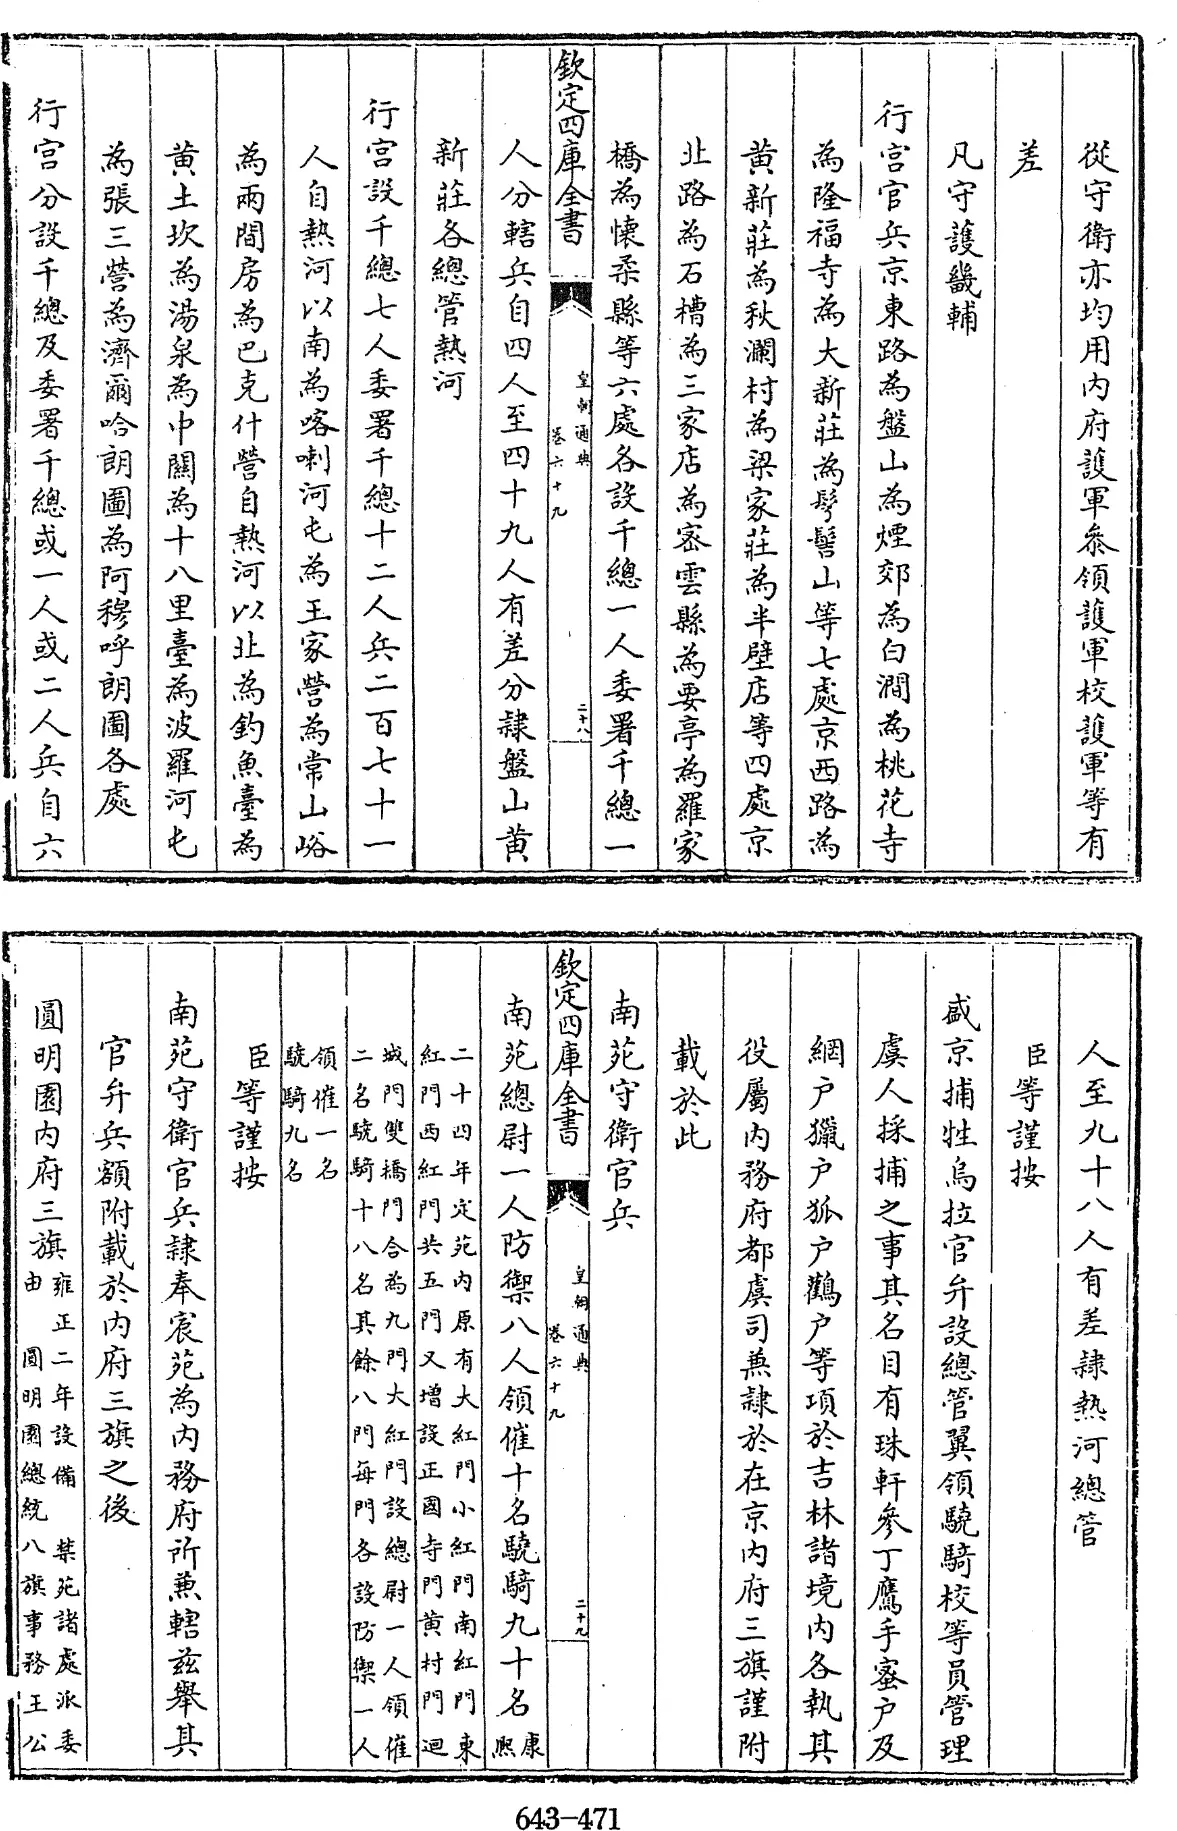 從守衛亦均用内府護軍叅領護軍校護軍等有
差
凡守護畿輔
行宫官兵京東路為盤山為煙郊為白澗為桃花寺
為隆福寺為大新莊為髽髻山等七處京西路為
黄新莊為秋瀾村為梁家莊為半壁店等四處京
北路為石槽為三家店為宻雲縣為要亭為羅家
橋為懐柔縣等六處各設千總一人委署千總一
欽定四庫全書
皇朝通典
卷六十九
二十八
人分轄兵自四人至四十九人有差分隷盤山黄
新莊各總管熱河
行宫設千總七人委署千總十二人兵二百七十一
人自熱河以南為喀喇河屯為王家營為常山峪
為兩間房為巴克什營自熱河以北為釣魚臺為
黄土坎為湯泉為中關為十八里臺為波羅河屯
為張三營為濟爾哈朗圖為阿穆呼朗圖各處
行宫分設千總及委署千總或一人或二人兵自六
人至九十八人有差隷熱河總管
臣等謹按
盛京捕牲烏拉官弁設總管翼領驍騎校等員管理
虞人採捕之事其名目有珠軒參丁鷹手蜜户及
網户獵户狐户鸛户等項於吉林諸境内各執其
役屬内務府都虞司兼隷於在京内府三旗謹附
載於此
南苑守衛官兵
欽定四庫全書
皇朝通典
卷六十九
二十九
南苑總尉一人防禦八人領催十名驍騎九十名康熙
二十四年定苑内原有大紅門小紅門南紅門東
紅門西紅門共五門又增設正國寺門黄村門迴
城門雙橋門合為九門大紅門設總尉一人領催
二名驍騎十八名其餘八門每門各設防禦一人
領催一名
驍騎九名
臣等謹按
南苑守衛官兵隷奉宸苑為内務府所兼轄兹舉其
官弁兵額附載於内府三旗之後
圓明園内府三旗雍正二年設備 禁苑諸處派委
由 圓明園總統八旗事務王公
643-471